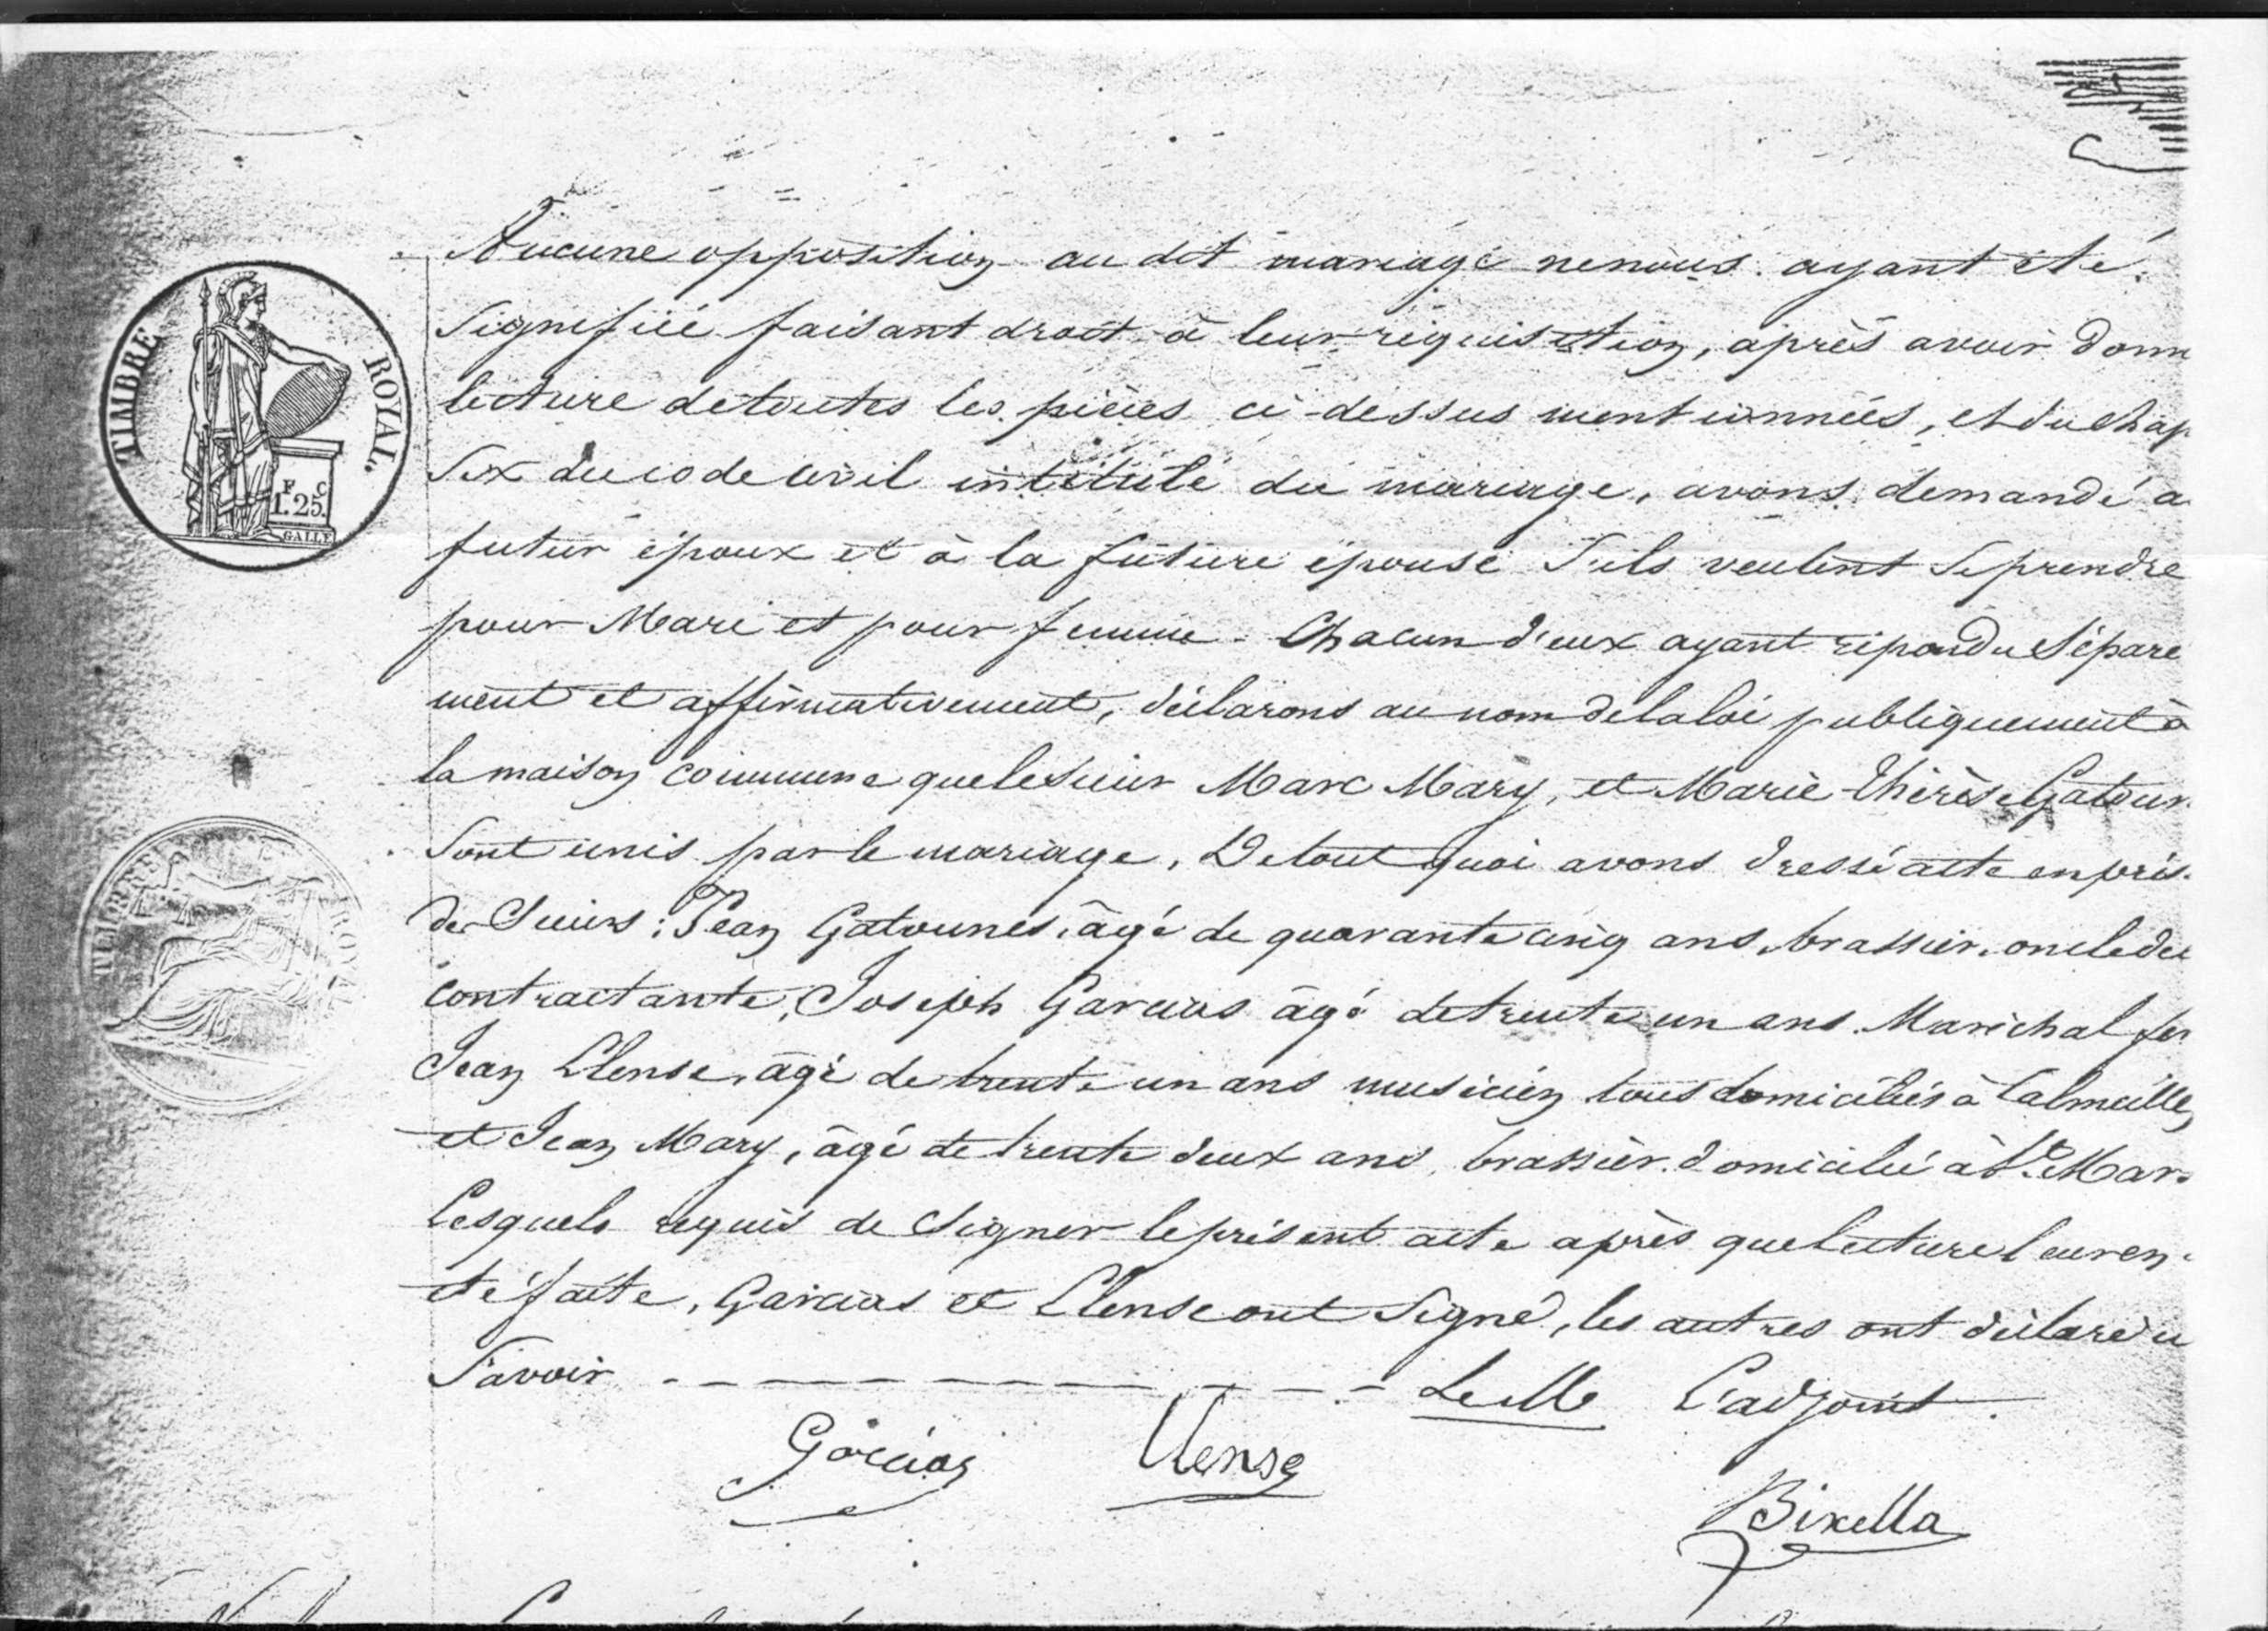 TIMBRE ROYAL.
F C
1.25.
GALLE
TIMBRE ROYAL
Aucune opposition au dit mariage ne nous ayant été
Signifiée faisant droit à leur réquisition, après avoir donn
lecture de toutes les pièces ci-dessus mentionnées, et du chap
Six du code civil intitulé du mariage, avons demandé a
futur époux et à la future épouse S'ils veulent se prendre
pour Mari et pour femme. Chacun d'eux ayant répondu Séparé
ment et affirmativement, déclarons au nom de la loi publiquement à
la maison commune que le Sieur Marc Mary, et Marie Thérèse Gatoun
Sont unis par le mariage. De tout quoi avons dressé acte en prés
des Sieurs : Jean Gatounes, âgé de quarante cinq ans, brassier, oncle de
contractante, Joseph Garcias âgé de trente un ans Maréchal fer
Jean Llense, âgé de trente un ans musicien tous domiciliés à Calmeilles
et Jean Mary, âgé de trente deux ans, brassier domicilié à Ste Mar
Lesquels requis de Signer le présent acte après que lecture leur en
été faite, Garcias et Llense ont Signé, les autres ont déclaré
Savoir Le Me L'adjoint
Garcias Llense
Bixella